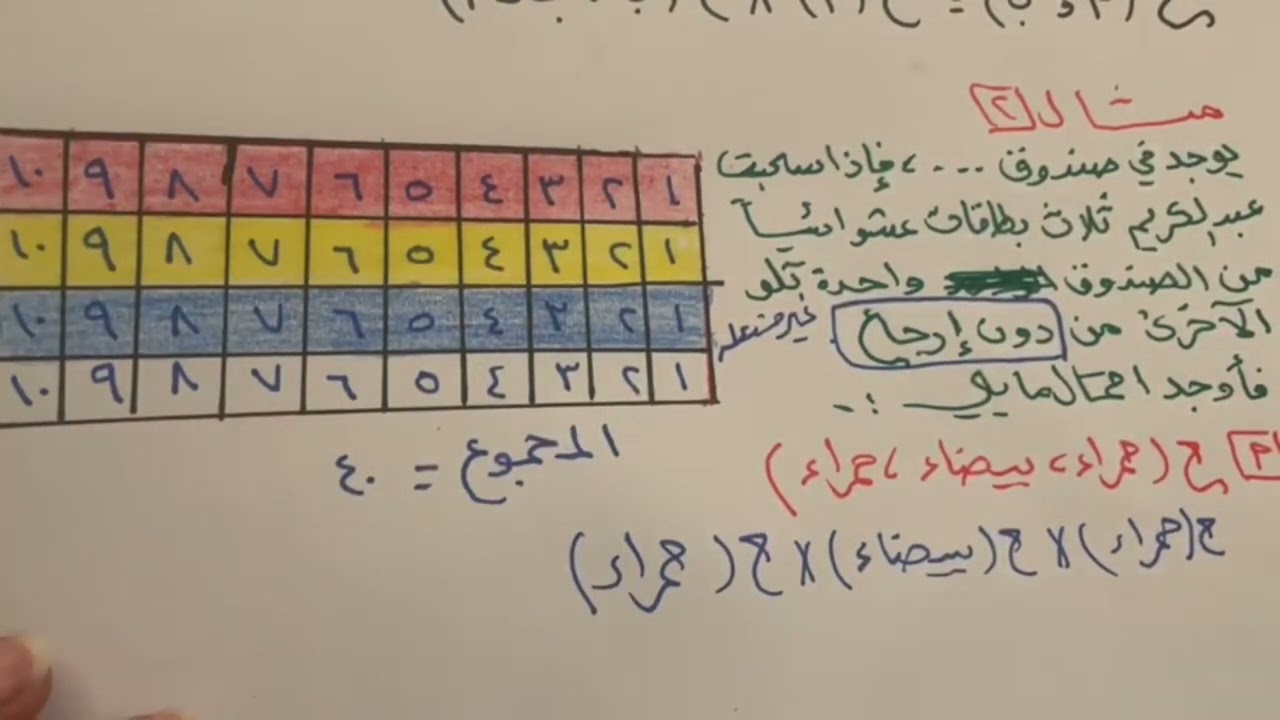 مثال ٢
يوجد في صندوق ... ، فإذا سحبت
عبدالكريم ثلاث بطاقات عشوائياً
من الصندوق واحدة تلو
الآخرى من دون إرجاع . غير مستقلة
فأوجد احتمال ما يلي :-
١ ٢ ٣ ٤ ٥ ٦ ٧ ٨ ٩ ١٠
١ ٢ ٣ ٤ ٥ ٦ ٧ ٨ ٩ ١٠
١ ٢ ٣ ٤ ٥ ٦ ٧ ٨ ٩ ١٠
١ ٢ ٣ ٤ ٥ ٦ ٧ ٨ ٩ ١٠
المجموع = ٤٠
ح (حمراء، بيضاء، حمراء)
ح(حمراء) x ح(بيضاء) x ح(حمراء)